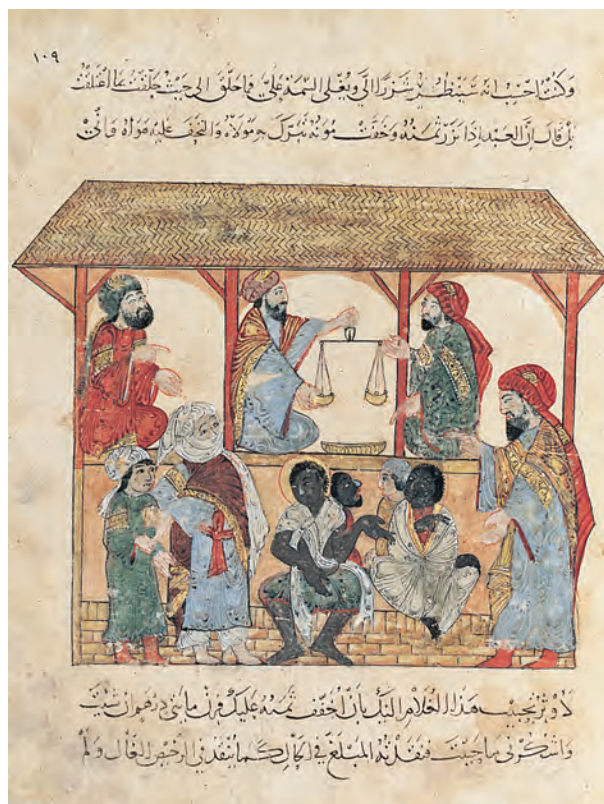 ١٠٩
وكنت احسب انه سينظر شزرا الي ويغلي السيمة علي فما حلق الى حيث حلقت اعتلقت
بل قال ان العبد اذا نزر ثمنه وخفت مونه تبرك به مولاه والتحف عليه واني
لاوثر تحبيب هذا الغلام اليك بان اخفف ثمنه عليك فزن مائتي درهم ان شيت
واشكر لي ما حييت فنقدته المبلغ في الحال كما ينقد في الرخيص الغال ولم